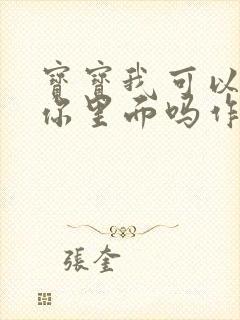 寶寶我可以
你里而吗作
張奎